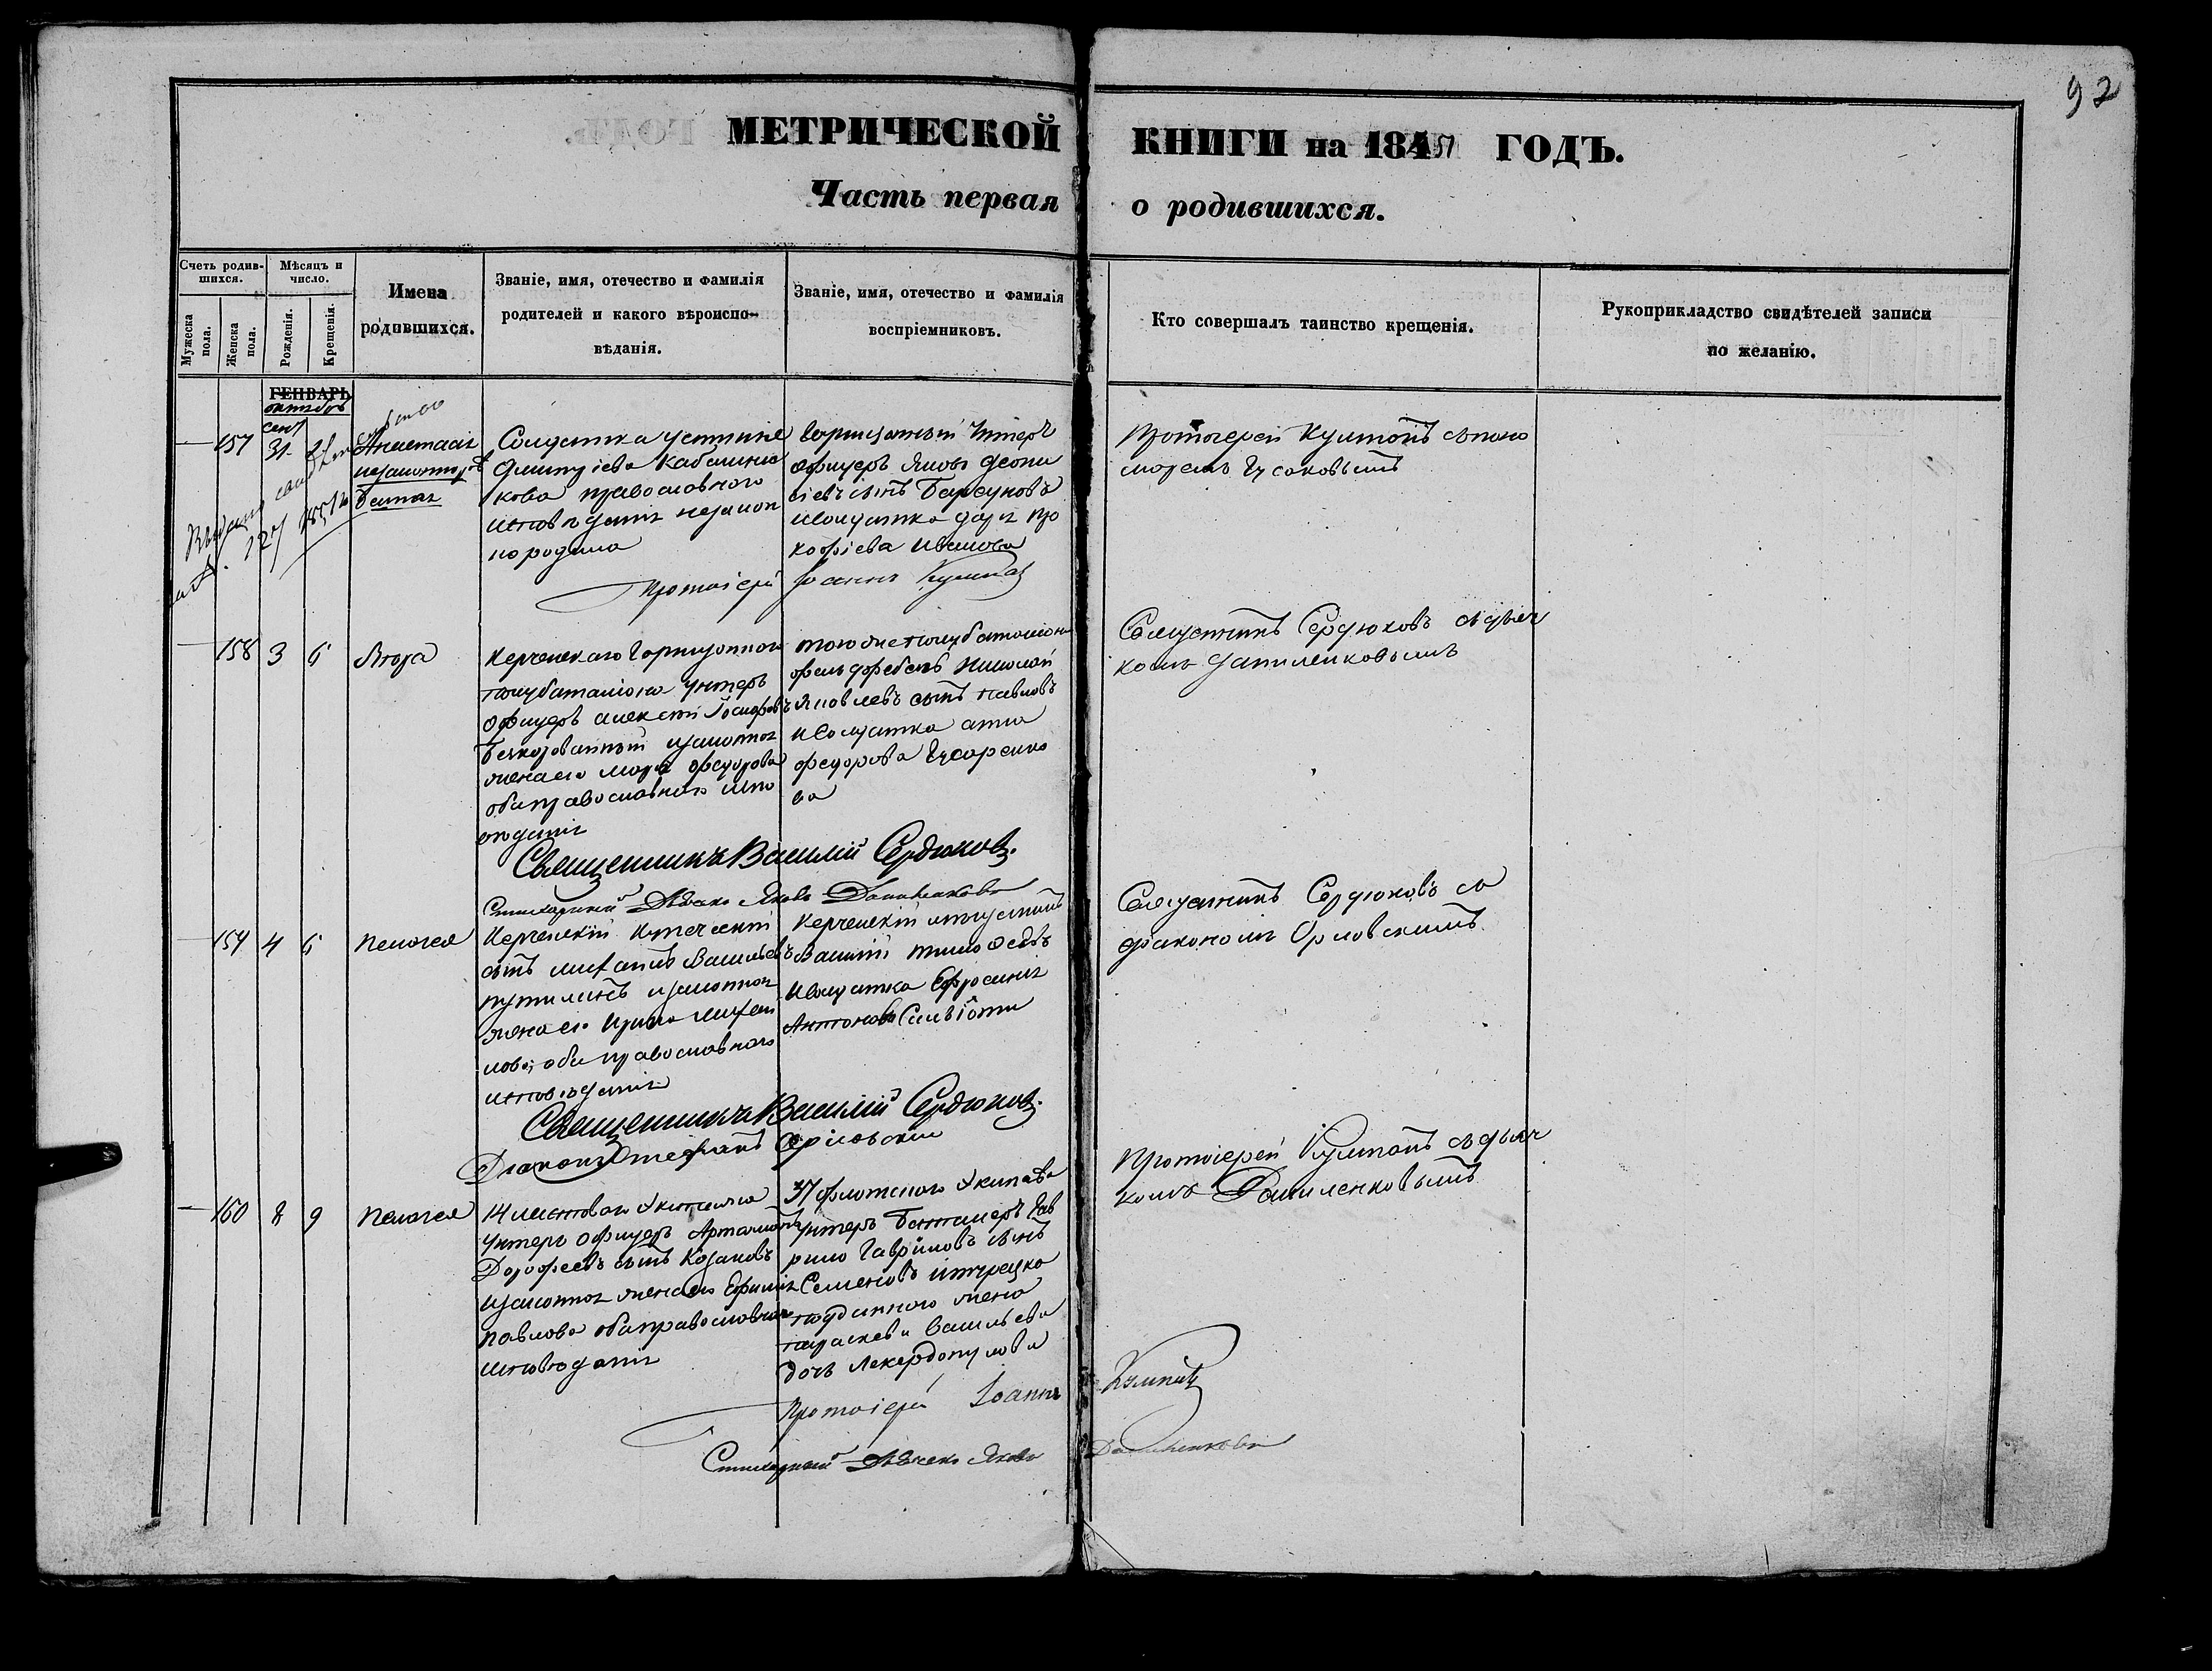 92
МЕТРИЧЕСКОЙ КНИГИ на 1851 ГОДЪ.
Часть первая о родившихся.
Счетъ родившихся.
Мужеска пола.
Женска пола.
Мѣсяцъ и число.
Рожденія.
Крещенія.
Имена родившихся.
Званіе, имя, отечество и фамилія
родителей и какого вѣроиспо-
вѣданія.
Званіе, имя, отечество и фамилія
воспріемниковъ.
Кто совершалъ таинство крещенія.
Рукоприкладство свидѣтелей записи
по желанію.
ГЕНВАРЬ
октябрь
сент
157 31 2 Анастасія
незаконнорож
Солдатка Устинье
Димитріева
кова православного
исповѣданія незакон
но родила
Унтеръ
офицеръ Яковъ Деони
сіевъ сынъ Барсуковъ
и солдатка Дарія Про
кофіева Иванова
Протоіерей Кумпанъ съ поно
маремъ Гусаковымъ
Протоіерей Іоаннъ Кумпанъ
158 3 6
Керченскаго Гарнизонного
полубаталіона Унтеръ
офицеръ Алексѣй
изаконная
жена его Марѳа Федорова
оба православного испо
вѣданія
того же полубаталіона
фельдфебель Николай
Яковлевъ сынъ Павловъ
и Солдатка Анна
Федорова
ва
Священникъ Сердюковъ съ дьяч
комъ Даниленковымъ
Священникъ Василій Сердюковъ.
Стихарный Дьячекъ Яковъ Даниленковъ
159 4 6 Пелагея
Керченскій Купеческій
сынъ Михаилъ Васильевъ
изаконная
жена его Ирина Михаи
лова, оба православного
исповѣданія
Керченскій
Василій
и солдатка Ефросинія
Антонова
Священникъ Сердюковъ съ
діакономъ Орловскимъ
Священникъ Василій Сердюковъ.
Діаконъ Стефанъ Орловскій
160 8 9 Пелагея
14 ластоваго Экипажа
Унтеръ офицеръ Артамонъ
Дорофеевъ сынъ Казаковъ
изаконная жена его Ефимія
Павлова оба православного
исповѣданія
37 флотского Экипажа
Унтеръ Баталеръ Гав
рило Гавриловъ сынъ
Семеновъ и турецко
подданного жена
Параскева Васильева
дочь
Протоіерей Кумпанъ съ дьяч
комъ Даниленковымъ
Протоіерей Іоаннъ Кумпанъ
Стихарный Дьячекъ Яковъ Даниленковъ